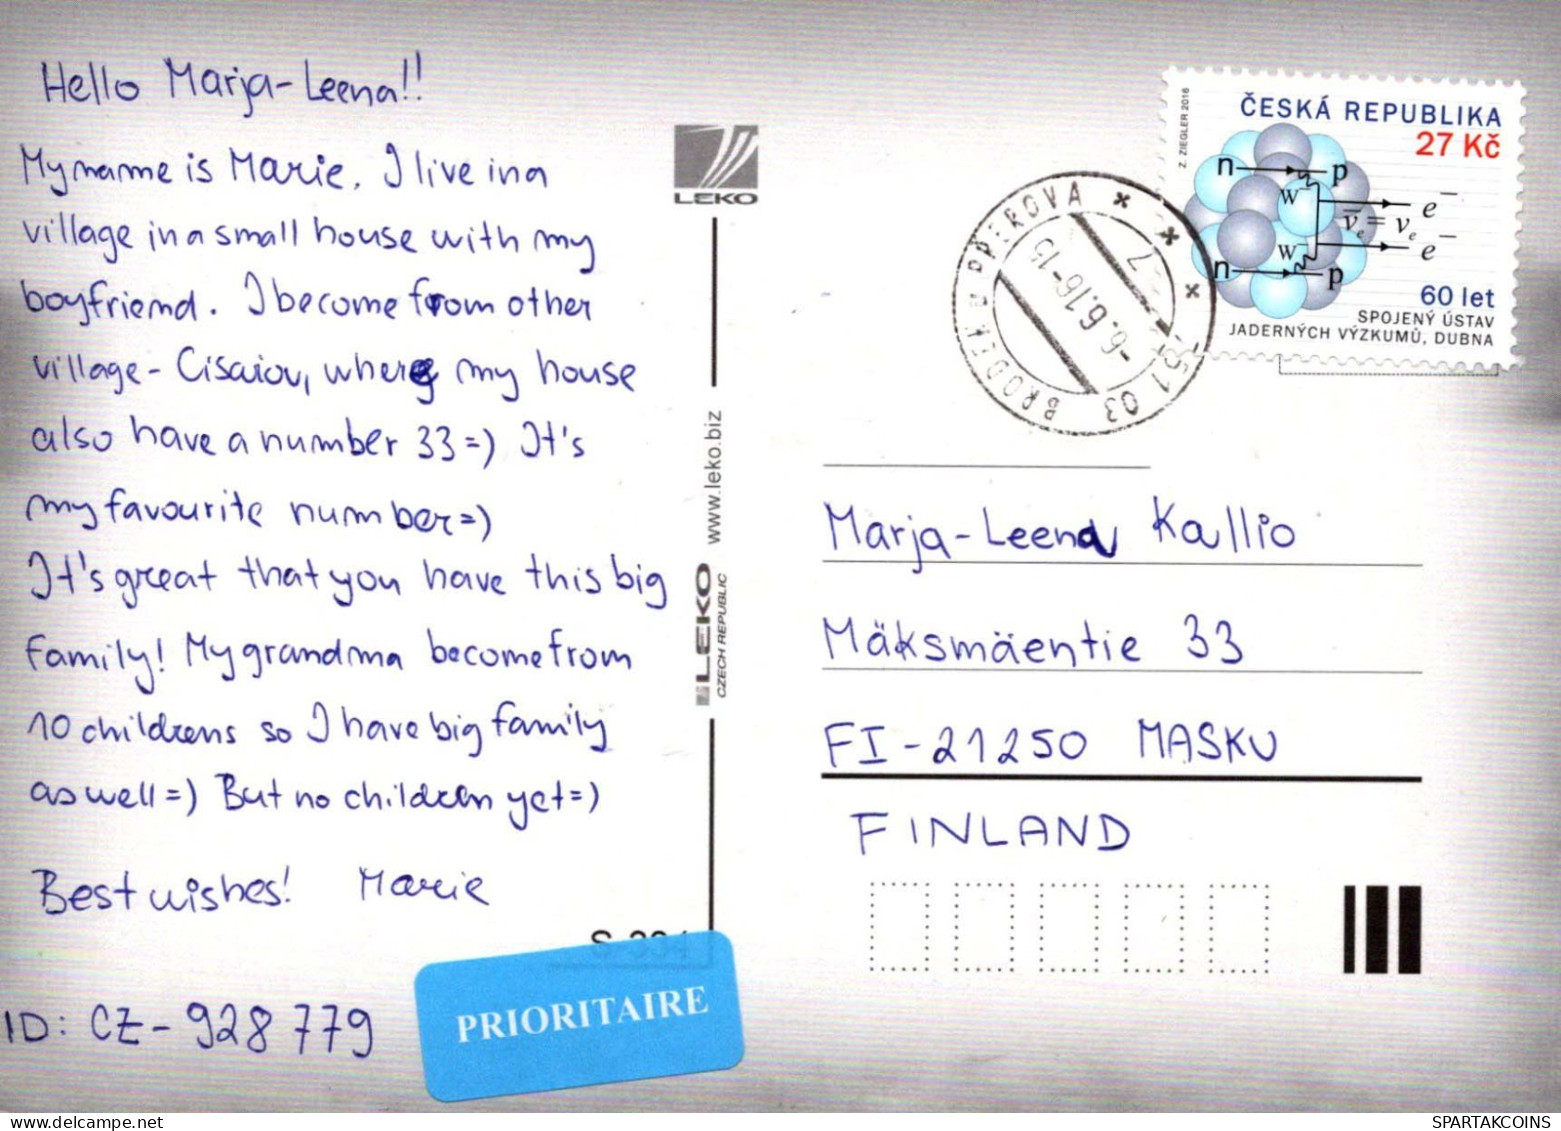 Hello Marja-Leena!!
My name is Marie. I live in a
village in a small house with my
boyfriend. I become from other
village - Cisařov, where my house
also have a number 33=) It's
my favourite number=)
It's great that you have this big
family! My grandma become from
10 childrens so I have big family
as well=) But no children yet=)
Best wishes! Marie
ID: CZ-928 779
PRIORITAIRE
LEKO
www.leko.biz
LEKO
CZECH REPUBLIC
BRODEK U PŘEROVA
751 03
-6.6.16-15
Z. ZIEGLER 2016
ČESKÁ REPUBLIKA
27 Kč
n p
W⁻ e⁻
v̄ₑ = vₑ
W⁻ e⁻
n p
60 let
SPOJENÝ ÚSTAV
JADERNÝCH VÝZKUMŮ, DUBNA
Marja-Leena Kallio
Mäksmäentie 33
FI-21250 MASKU
FINLAND
SPARTAKCOINS